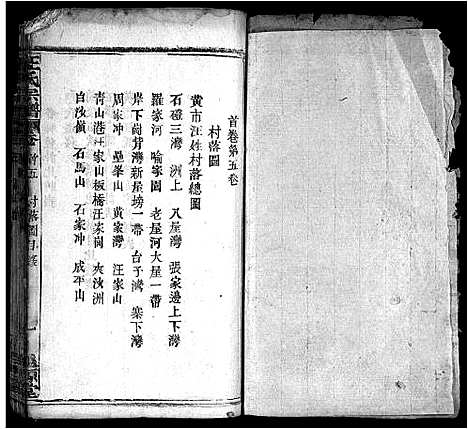 首卷第五卷
村落圖
黄市汪姓村落總圖
石磴三灣　洲上　八屋灣　張家邊上下灣
羅家河　喻家園　老屋河大屋一帶
岸下崗背灣新星塝一帶　台子灣　寨下灣
周家冲　壘峯山　黄家灣　汪家山
青山港汪家山板橋汪家崗　夾汝洲
白汝嶺　石馬山　石家冲　成平山
汪氏宗譜　首五　村落圖目錄